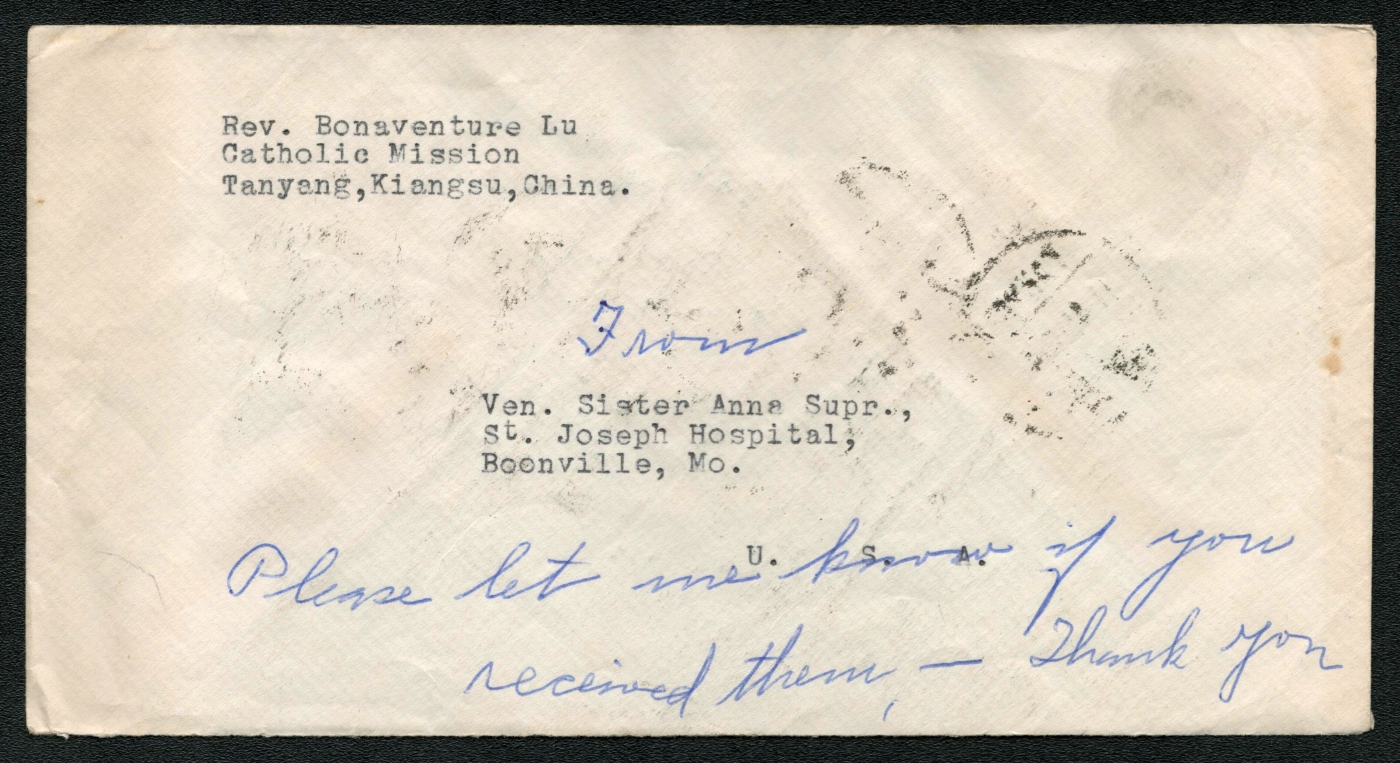 Rev. Bonaventure Lu
Catholic Mission
Tanyang,Kiangsu,China.
From
Ven. Sister Anna Supr.,
St. Joseph Hospital,
Boonville, Mo.
U. S. A.
Please let me know if you
received them, — Thank you